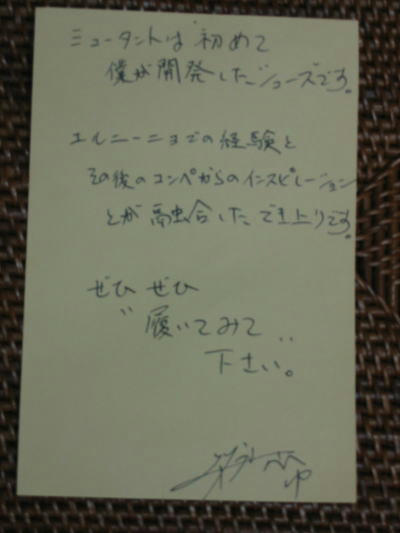 ミュータントは 初めて
僕が開発したシューズです。
エルニーニョでの経験と
その後のコンペからのインスピレーション
とが融合したでき上りです。
ぜひ ぜひ
"履いてみて"
下さい。